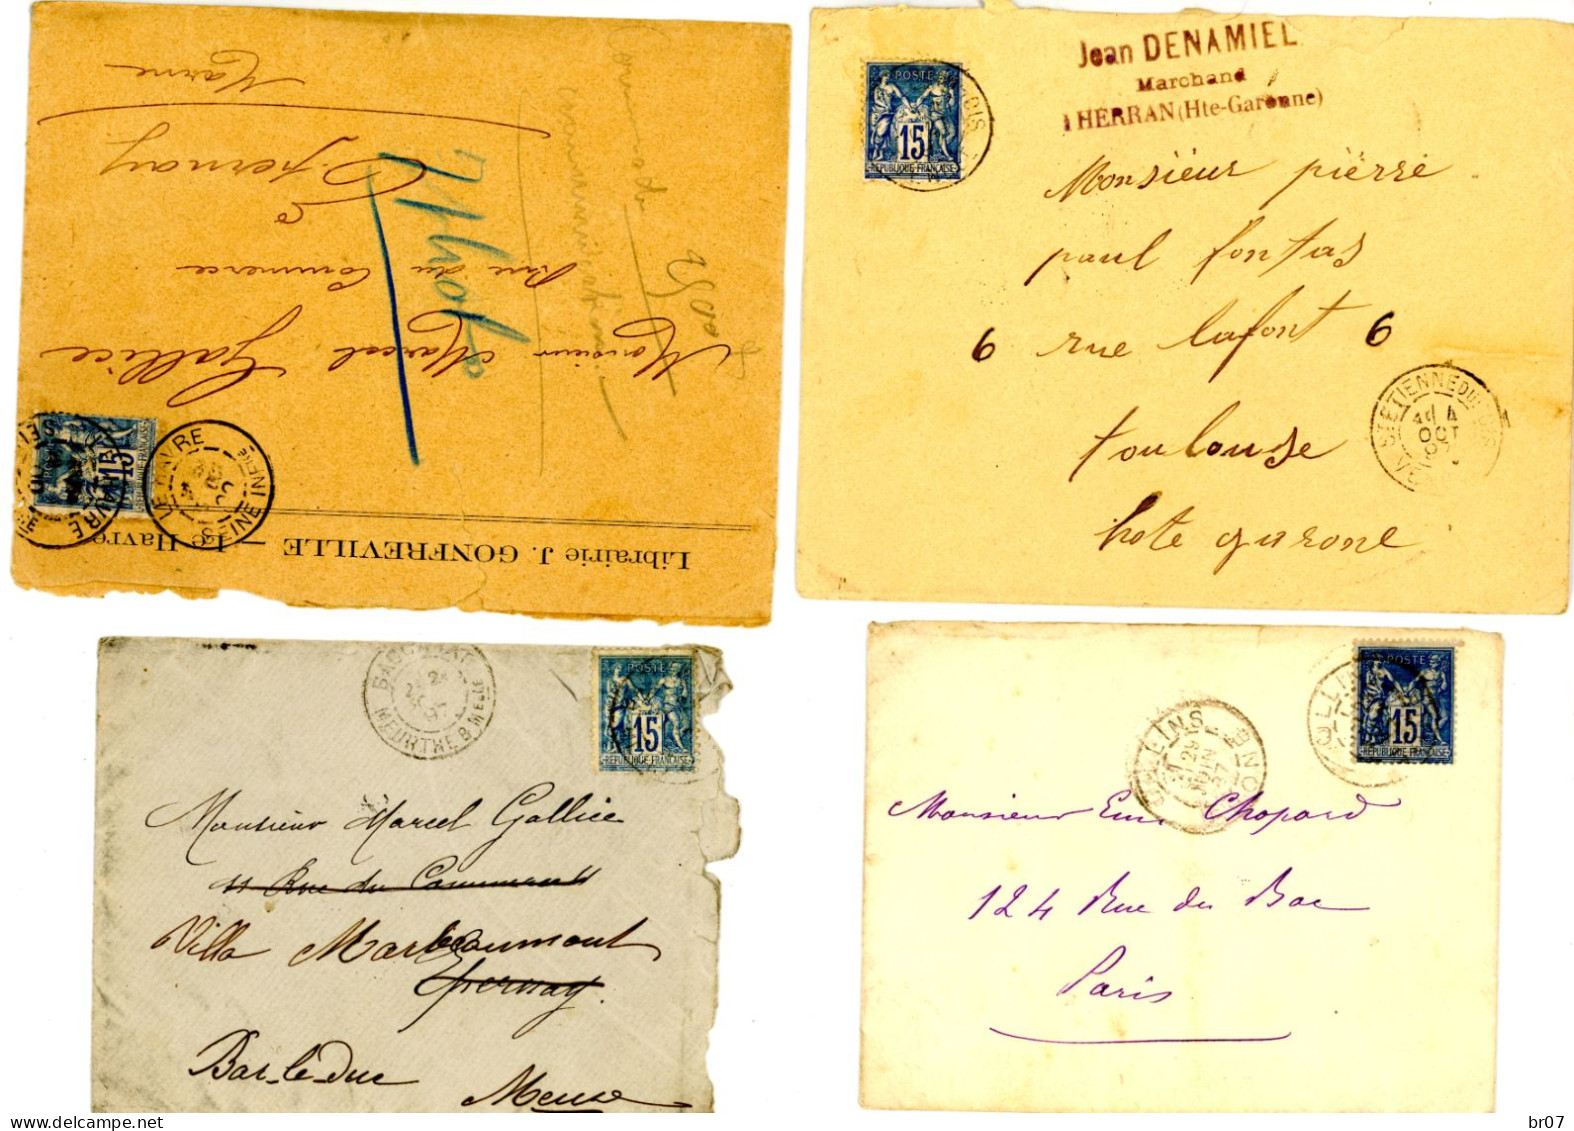 Librairie J. GONFREVILLE — Le Havre
LE HAVRE
SEINE INFRE
REPUBLIQUE FRANÇAISE
15
Monsieur Marcel Gallice
Rue du Commerce
à
Epernay
Marne
Photo
Jean DENAMIEL
Marchand
HERRAN (Hte-Garonne)
POSTE
15
REPUBLIQUE FRANÇAISE
Monsieur pierre
paul fontas
6 rue lafont 6
toulouse
hote garone
4
OCT
BACCARAT
97
MEURTHE & MELLE
POSTE
15
REPUBLIQUE FRANÇAISE
Monsieur Marcel Gallice
11 Rue du Commerce
Villa Marbeaumont
Epernay.
Bar-le-Duc
Meuse
POSTE
15
REPUBLIQUE FRANÇAISE
29
JUIN
97
Monsieur Chopard
124 Rue du Bac
Paris
delcampe.net
br07